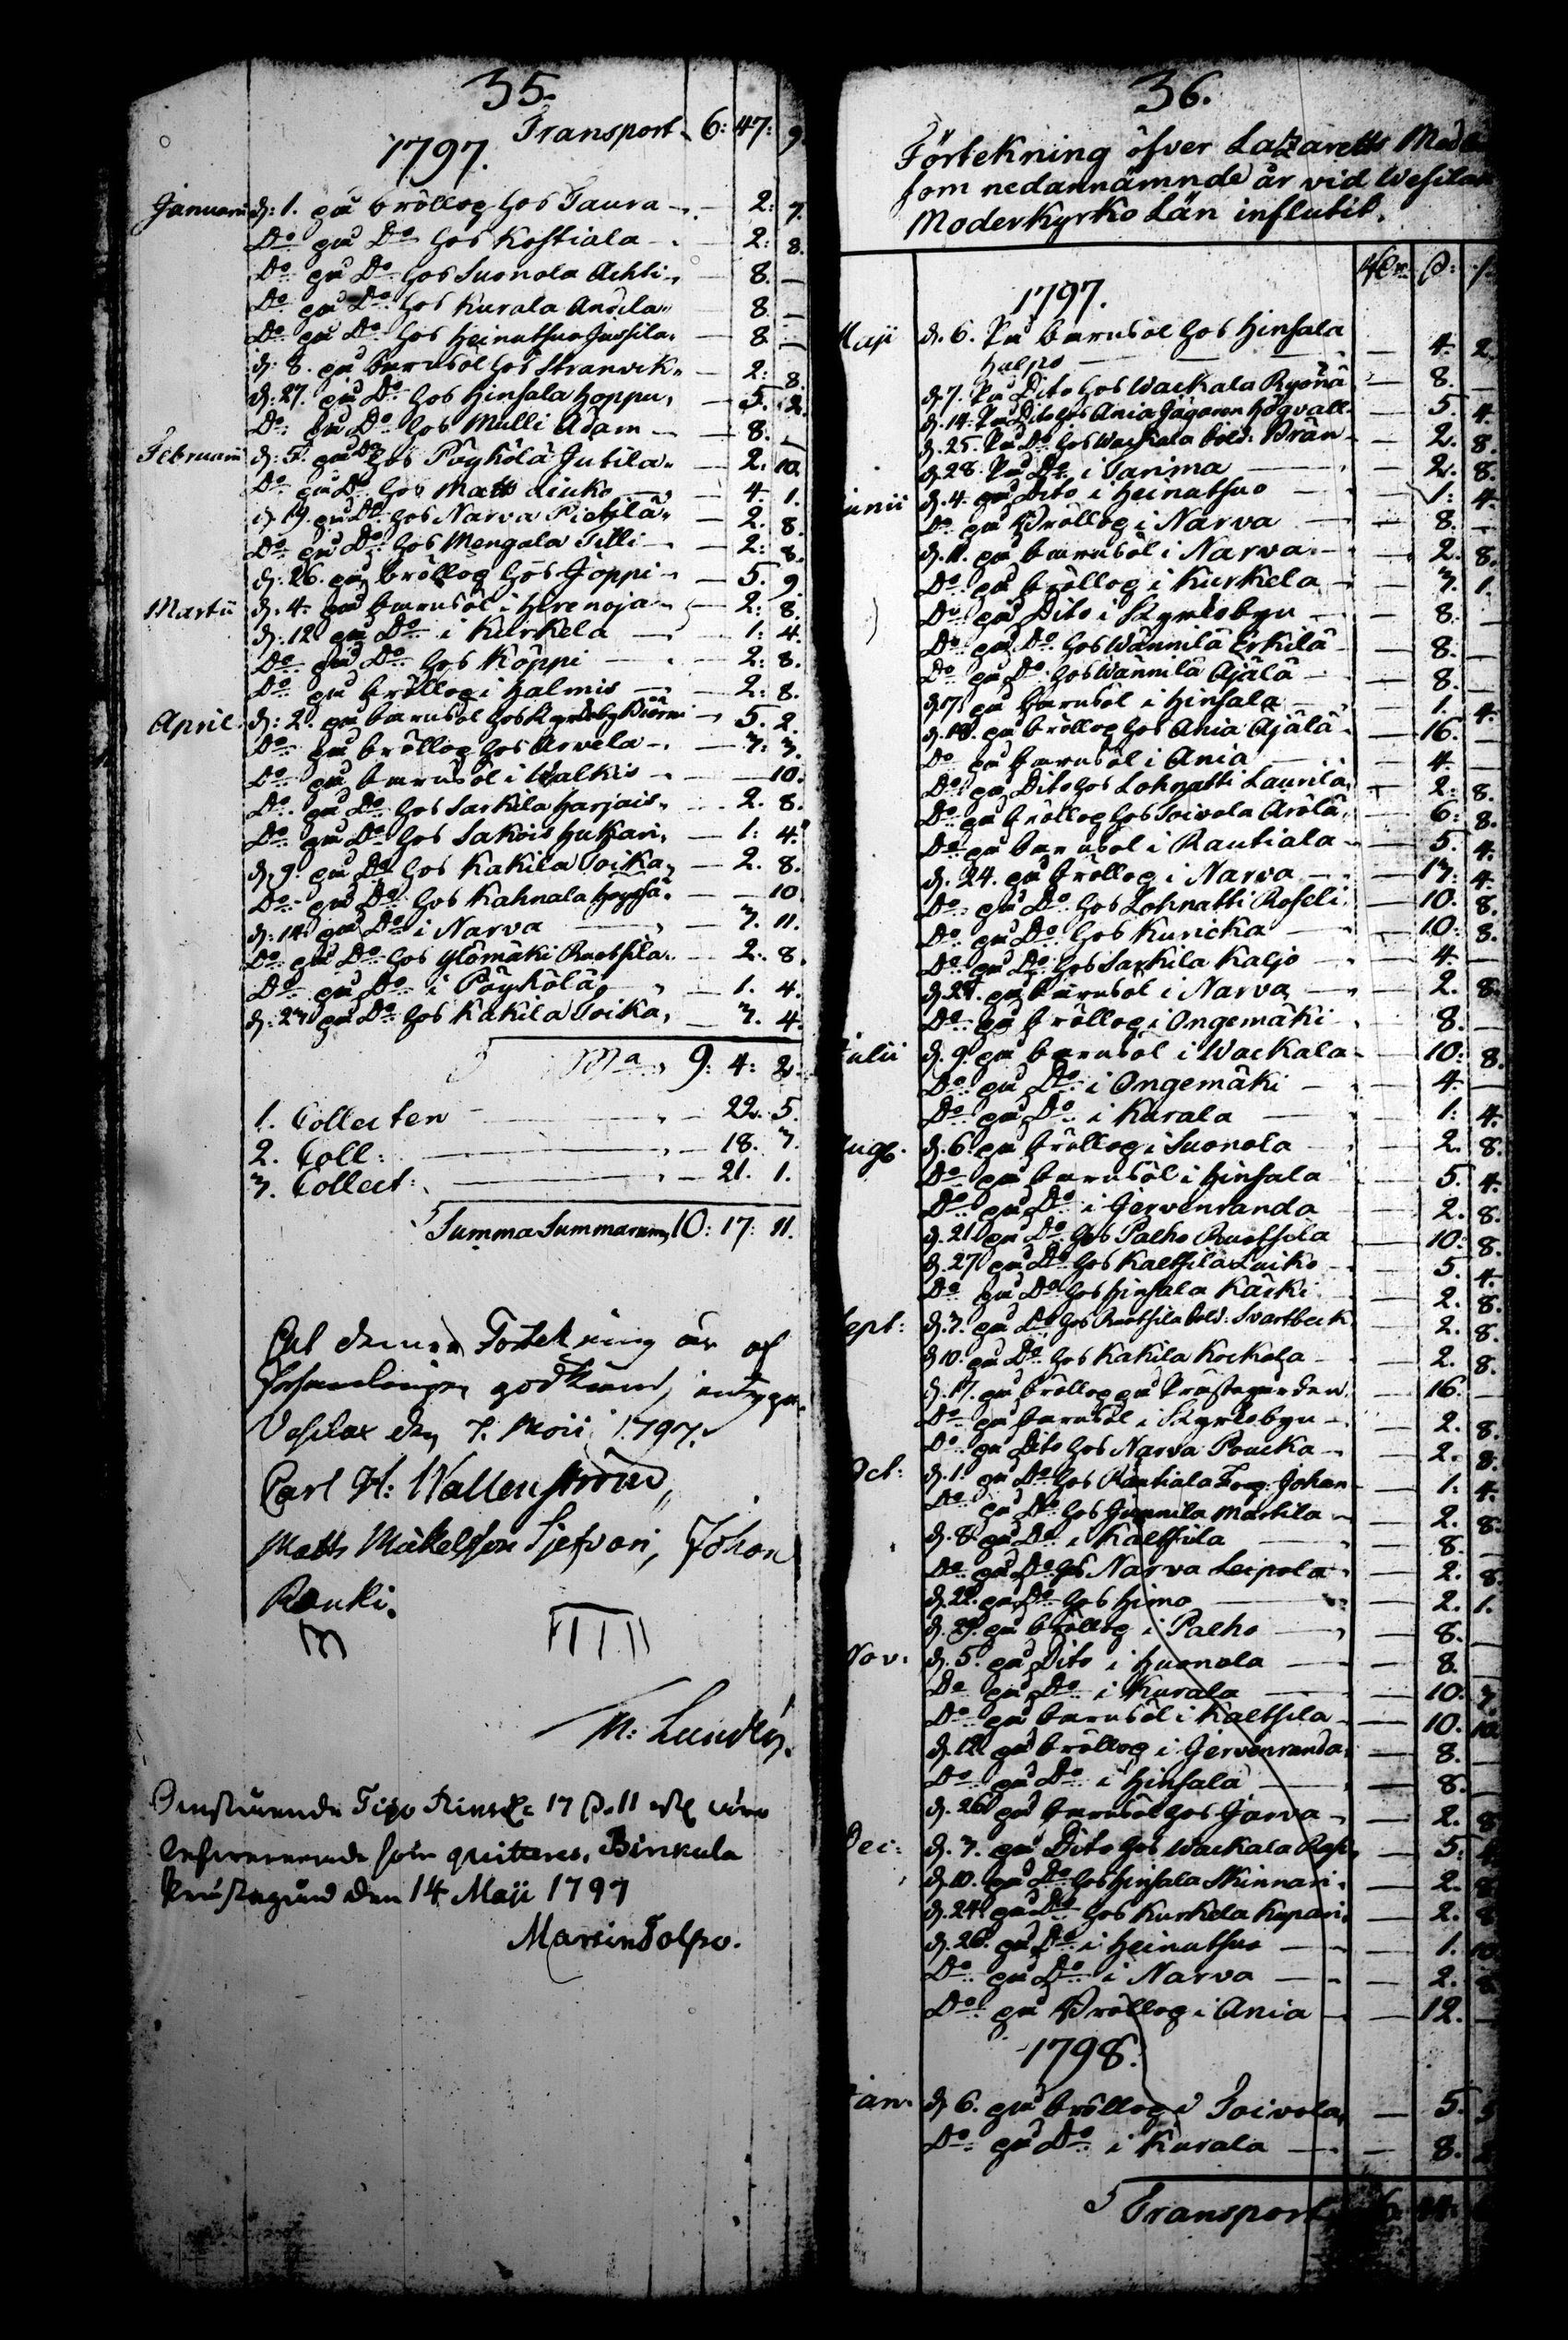 35.
Transport 6: 47: 9.
1797.
Januarii d: 1. på bröllop hos Taura — 2: 7.
Do på Do hos Kostiala — 2: 8.
Do på Do hos Suonola Achti — 8. —
Do på Do hos Kurala Andila — 8. —
Do på Do hos Heinathuo Jussila — 8. —
d: 8. på barnsöl hos Stranvik — 2: 8.
d: 27. på Do hos Hinsala Hoppu — 5. 2.
Do på Do hos Mulli Adam — 8. —
Februarii d: 5. på Do hos Pöyhölä Jutila — 2. 10.
Do på Do hos Matts Liuko — 4. 1.
d. 19. på Do hos Narva Pietilä — 2. 8.
Do på Do hos Mengala Tilli — 2: 8.
d: 26. på bröllop hos Joppi — 5. 9.
Martii d: 4. på barnsöl i Hirenoja — 2: 8.
d: 12 på Do i Kurkela — 1: 4.
Do på Do hos Köppi — 2: 8.
Do på bröllop i Halmis — 2: 8.
April d: 2. på barnsöl hos Kyrkoby — 5. 2.
Do på bröllop hos Arvela — 7: 7.
Do på barnsöl i Walkis — 10.
Do på Do hos Sarkila Harjais — 2. 8.
Do på Do hos Sakois Huhkari — 1: 4.
d. 9. på Do hos Kakila Toika — 2. 8.
Do på Do hos Kahnala — 10.
d: 14. på Do i Narva — 7. 11.
Do på Do hos Ylömäki Ruotsila — 2. 8.
Do på Do i Pöyhölä — 1. 4.
d: 27 på Do hos Kakila Toika — 7. 4.
Sma 9: 4: 2.
1. Collecten — 22. 5.
2. Coll: — 18. 7.
3. Collect: — 21. 1.
Summa Summarum, 10: 17: 11.
At denna Förtekning är af
Församlingen godkänd, intygar
Vesilax den 7. Maii 1797.
Carl H: Wallenström,
Matts Mickelsson Sjefvari, Johan
Rauki.
M: Lundén.
Tijo 17 s. 11
som quitteras, Birkala
Prästegård den 14 Maji 1797
Martin Tolpo.
36.
Förtekning öfver Latzaretts Med
som nedannämnde år vid Wesilax
Moderkyrko Län influtit.
1797.
Maji d. 6. På barnsöl hos Hinsala
Halpo — 4. 2.
d. 7. På Dito hos Wackala Ryönä — 8. —
d. 14. På Dito hos Ania Jägaren Högvall — 5. 4.
d. 25. På Do hos Wackala Sold: Brän — 2. 8.
d. 28. På Do i Tarima — 2. 8.
Junii d. 4. på Dito i Heinathuo — 1: 4.
Do på Bröllop i Narva — 8. —
d. 11. på barnsöl i Narva — 2. 8.
Do på bröllop i Kurkela — 7. 1.
Do på Dito i Kyrkobyn — 8. —
Do på Do hos Wännilä Erkilä — 8. —
Do på Do hos Wännilä Ajälä — 8. —
på barnsöl i Hinsala — 1. 4.
d. 18. på bröllop hos Ania Ajälä — 16. —
Do på barnsöl i Ania — 4. —
Do på Dito hos Lohnatti Laurila — 2. 8.
Do på bröllop hos Toivola Arölä — 6. 8.
Do på barnsöl i Rautiala — 5. 4.
d. 24. på bröllop i Narva — 17. 4.
Do på Do hos Lohnatti Roseli — 10. 8.
Do på Do hos Kuricka — 10: 8.
Do på Do hos Sarkila Kaljo — 4. —
på barnsöl i Narva — 2. 8.
Do på bröllop i Ongemäki — 8. —
Julii d. 9. på barnsöl i Wackala — 10: 8.
Do på Do i Ongemäki — 4. —
Do på Do i Kurala — 1: 4.
Aug. d. 6. på bröllop i Suonola — 2. 8.
Do på barnsöl i Hinsala — 5. 4.
Do på Do i Jervenranda — 2. 8.
d. 21 på Do hos Palho Ruotsila — 10. 8.
d. 27 på Do hos Kaltsila Laiko — 5. 4.
Do på Do hos Hinsala Kärki — 2. 8.
Sept: d. 3. på Do hos Ruotsila Sold: Svartbeck — 2. 8.
d. 10. på Do hos Kakila Kockola — 2. 8.
d. 17. på bröllop på Prästegården — 16. —
Do på barnsöl i Kyrkobyn — 2. 8.
Do på Dito hos Narva Poucka — 2. 8.
Oct: d. 1. på Do hos Rautiala Johan — 1: 4.
Do på Do hos Junnila Martila — 2. 8.
d. 8. på Do i Kaltsila — 8. —
Do på Do hos Narva Leipola — 2. 8.
d. 22. på Do hos Himo — 2. 1.
d. 29. på bröllop i Palho — 8. —
Nov. d. 5. på Dito i Huonola — 8. —
Do på Do i Kurala — 10. 7.
Do på barnsöl i Kaltsila — 10. 10.
d. 12. på bröllop i Jervenranda — 8. —
Do på Do i Hinsala — 8. —
d. 26 på barnsöl hos Jarva — 2. 8.
Dec: d. 3. på Dito hos Wackala — 5. 4.
d. 10. på Do hos Hinsala Skinnari — 2. 8.
d. 24 på Do hos Kurkela Kupari — 2. 8.
d. 26. på Do i Heinathuo — 1. 10.
Do på Do i Narva — 2. 8.
Do på Bröllop i Ania — 12. —
1798.
Jan. d. 6. på bröllop i Toivola — 5. 5.
Do på Do i Kurala — 8.
Transport